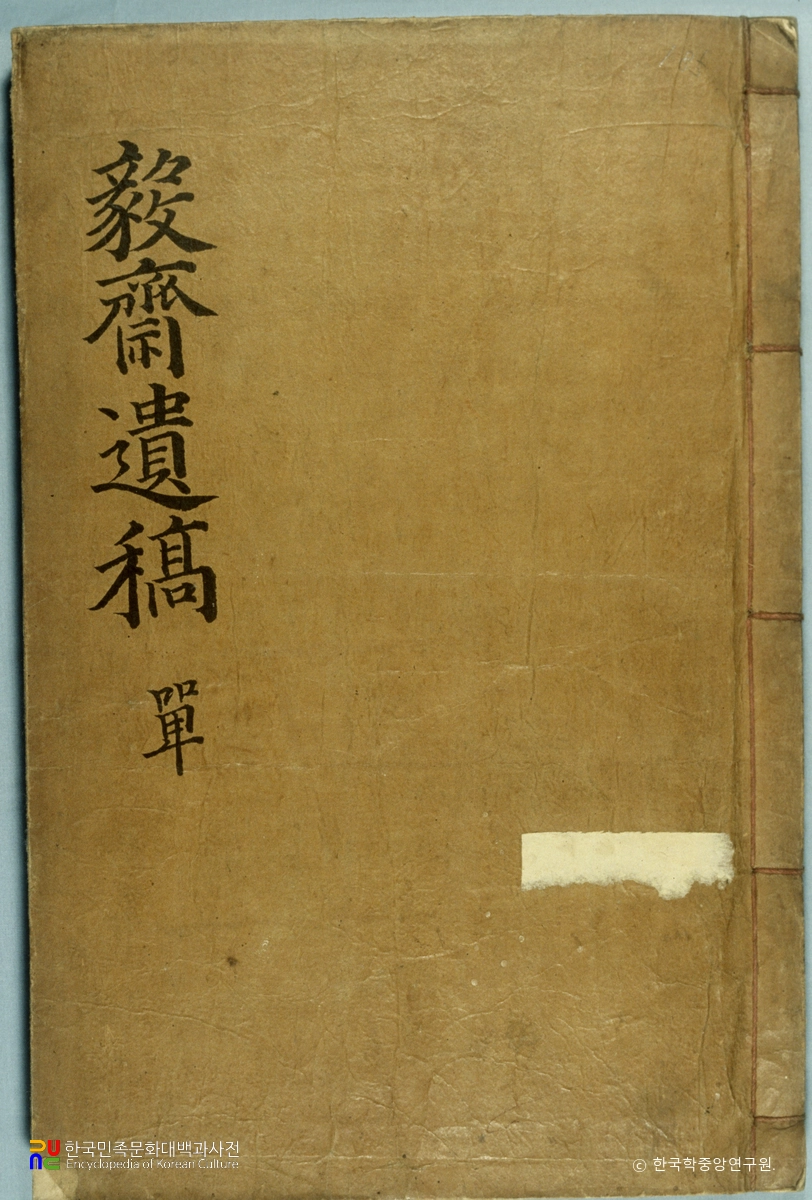 毅齋遺稿 單
한국민족문화대백과사전
Encyclopedia of Korean Culture
© 한국학중앙연구원.